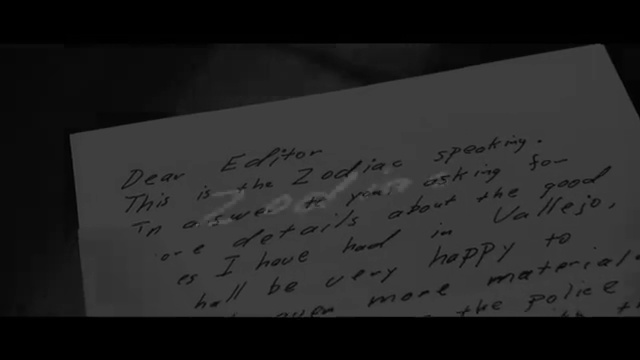 Dear Editor
This is the Zodiac speaking.
In answer to your asking for
ore details about the good
es I have had in Vallejo,
hall be very happy to
more material
the police
Zodiac